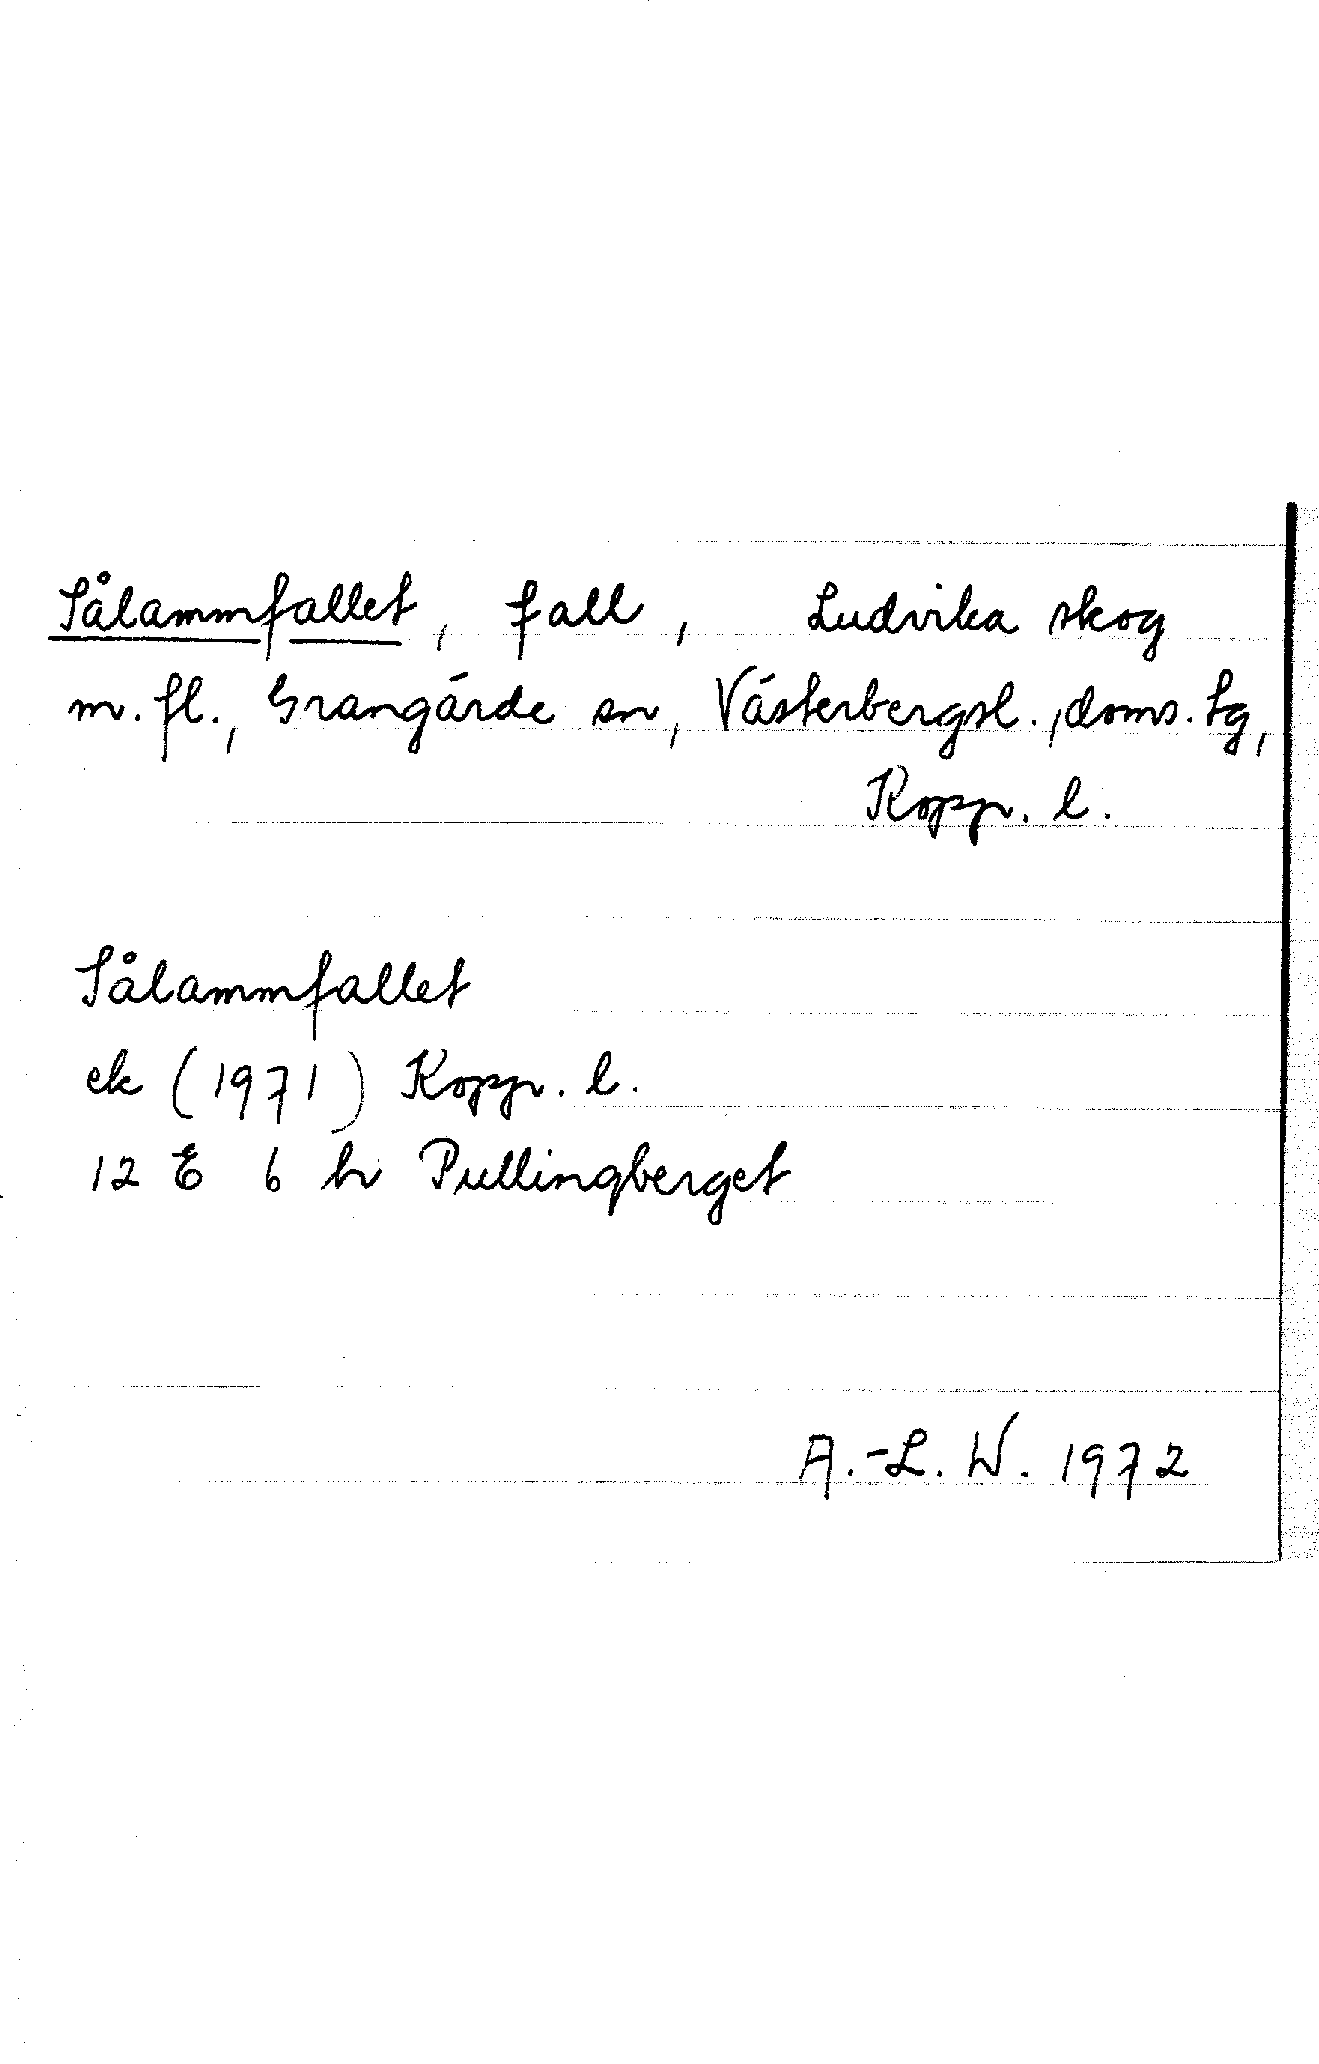 Sålammfallet, fall, Ludvika skog
m. fl., Grangärde sn, Västerbergsl., doms. tg,
Kopp. l.
Sålammfallet
ek (1971) Kopp. l.
12 E 6 h Pullingberget
A.-L. W. 1972